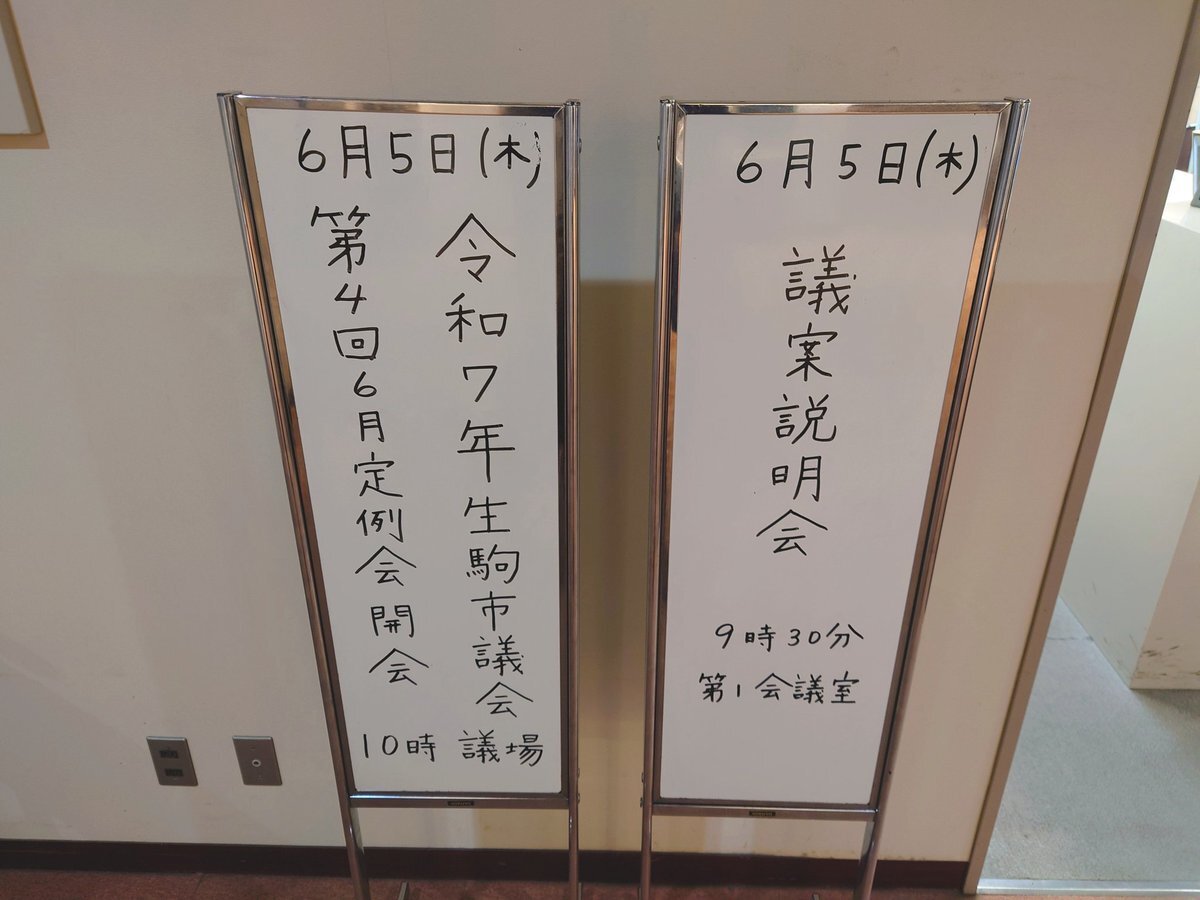 6月5日(木)
令和7年生駒市議会
第4回6月定例会開会
10時 議場
6月5日(木)
議案説明会
9時30分
第1会議室